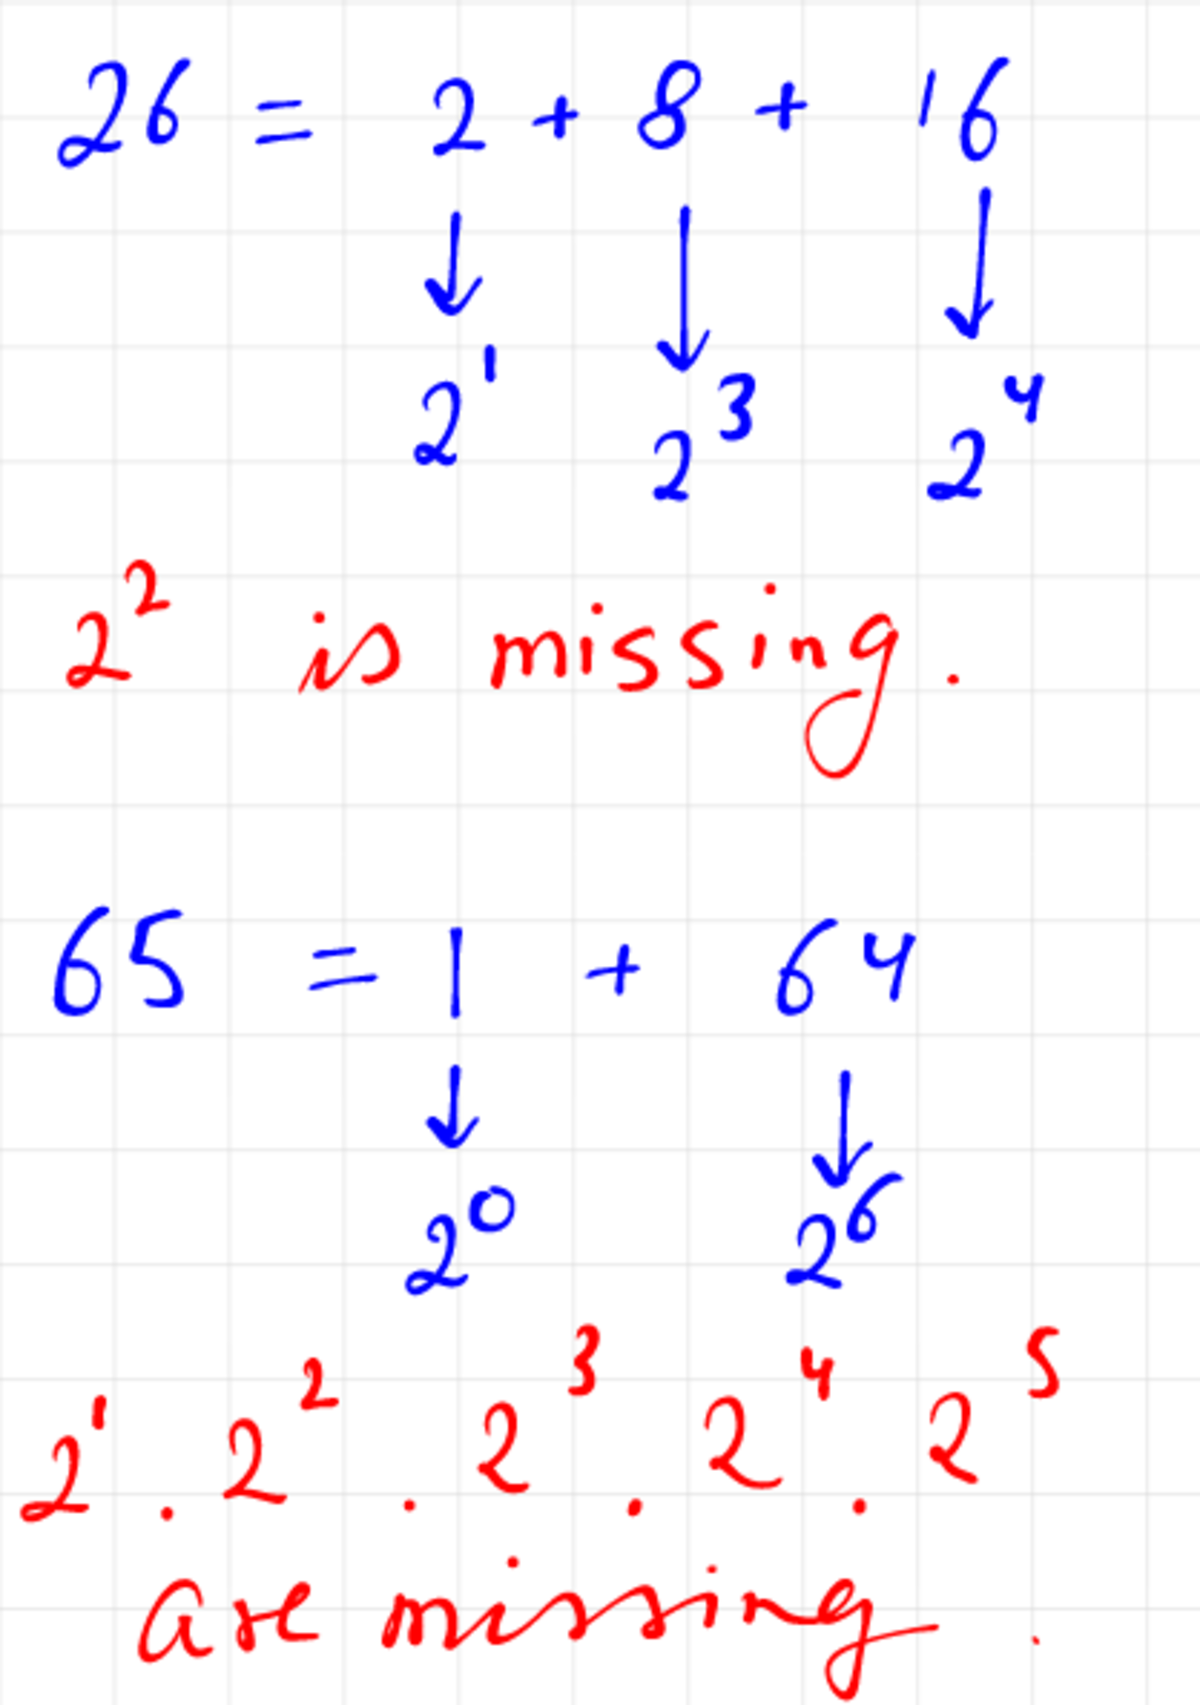 26 = 2 + 8 + 16
↓ ↓ ↓
2¹ 2³ 2⁴
2² is missing.
65 = 1 + 64
↓ ↓
2⁰ 2⁶
2¹ . 2² . 2³ . 2⁴ . 2⁵
are missing.